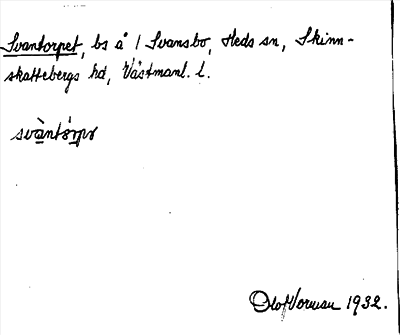 Svantorpet, bs å 1 Svansbo, Heds sn, Skinn-
skattebergs hd, Västmanl. l.
svàntórpr
Olof Norman 1932.